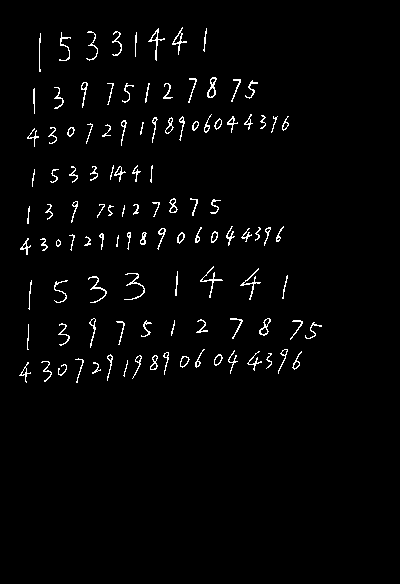 15331441
13975127875
430729198906044396
15331441
13975127875
430729198906044396
15331441
13975127875
430729198906044396